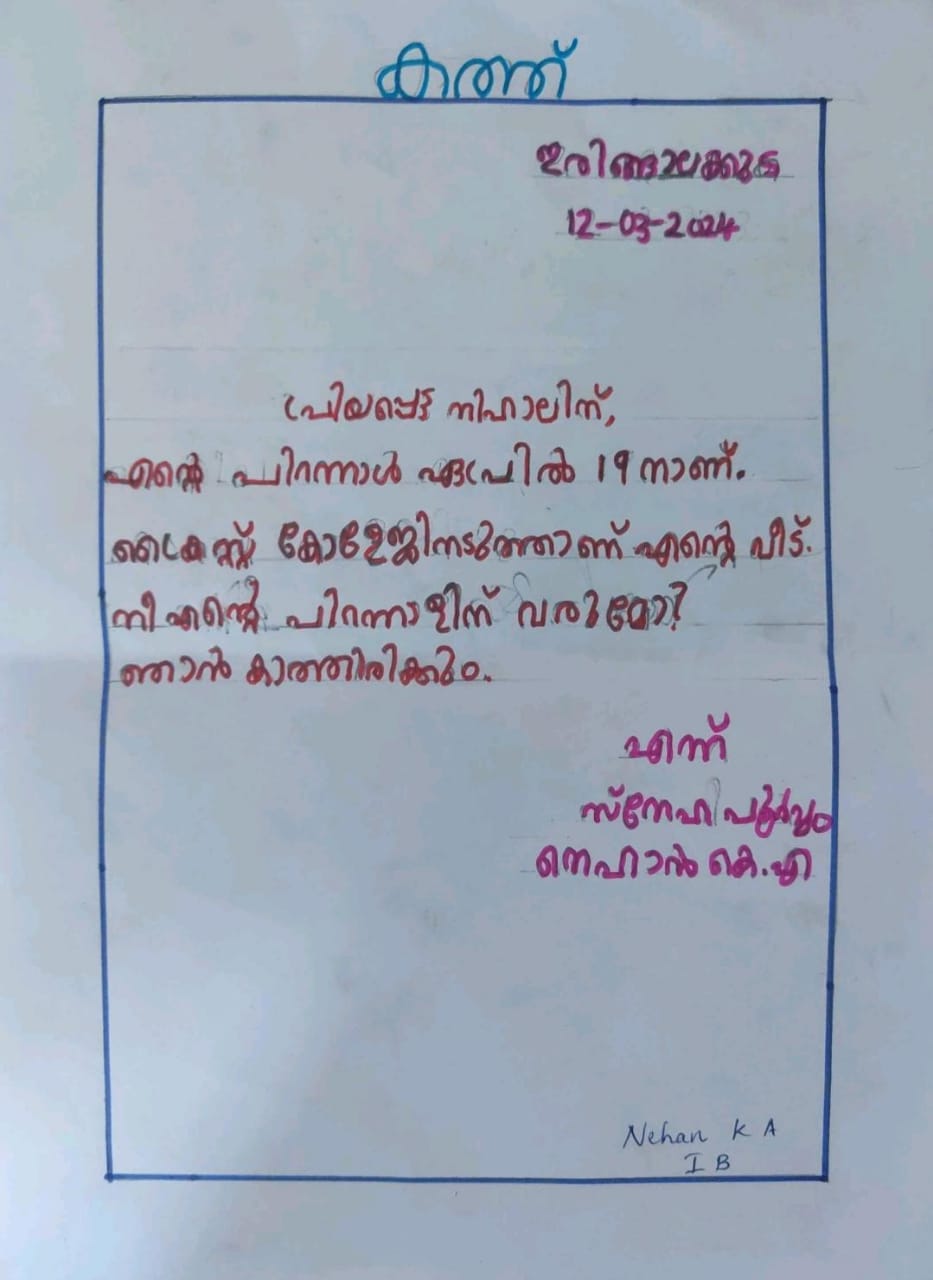 കത്ത്
ഇരിങ്ങാലക്കുട
12-03-2024
പ്രിയപ്പെട്ട നിഹാലിന്,
എന്റെ പിറന്നാൾ ഏപ്രിൽ 19നാണ്.
ക്രൈസ്റ്റ് കോളേജിനടുത്താണ് എന്റെ വീട്.
നീ എന്റെ പിറന്നാളിന് വരുമോ?
ഞാൻ കാത്തിരിക്കും.
എന്ന്
സ്നേഹപൂർവ്വം
നെഹാൻ കെ.എ
Nehan K A
I B